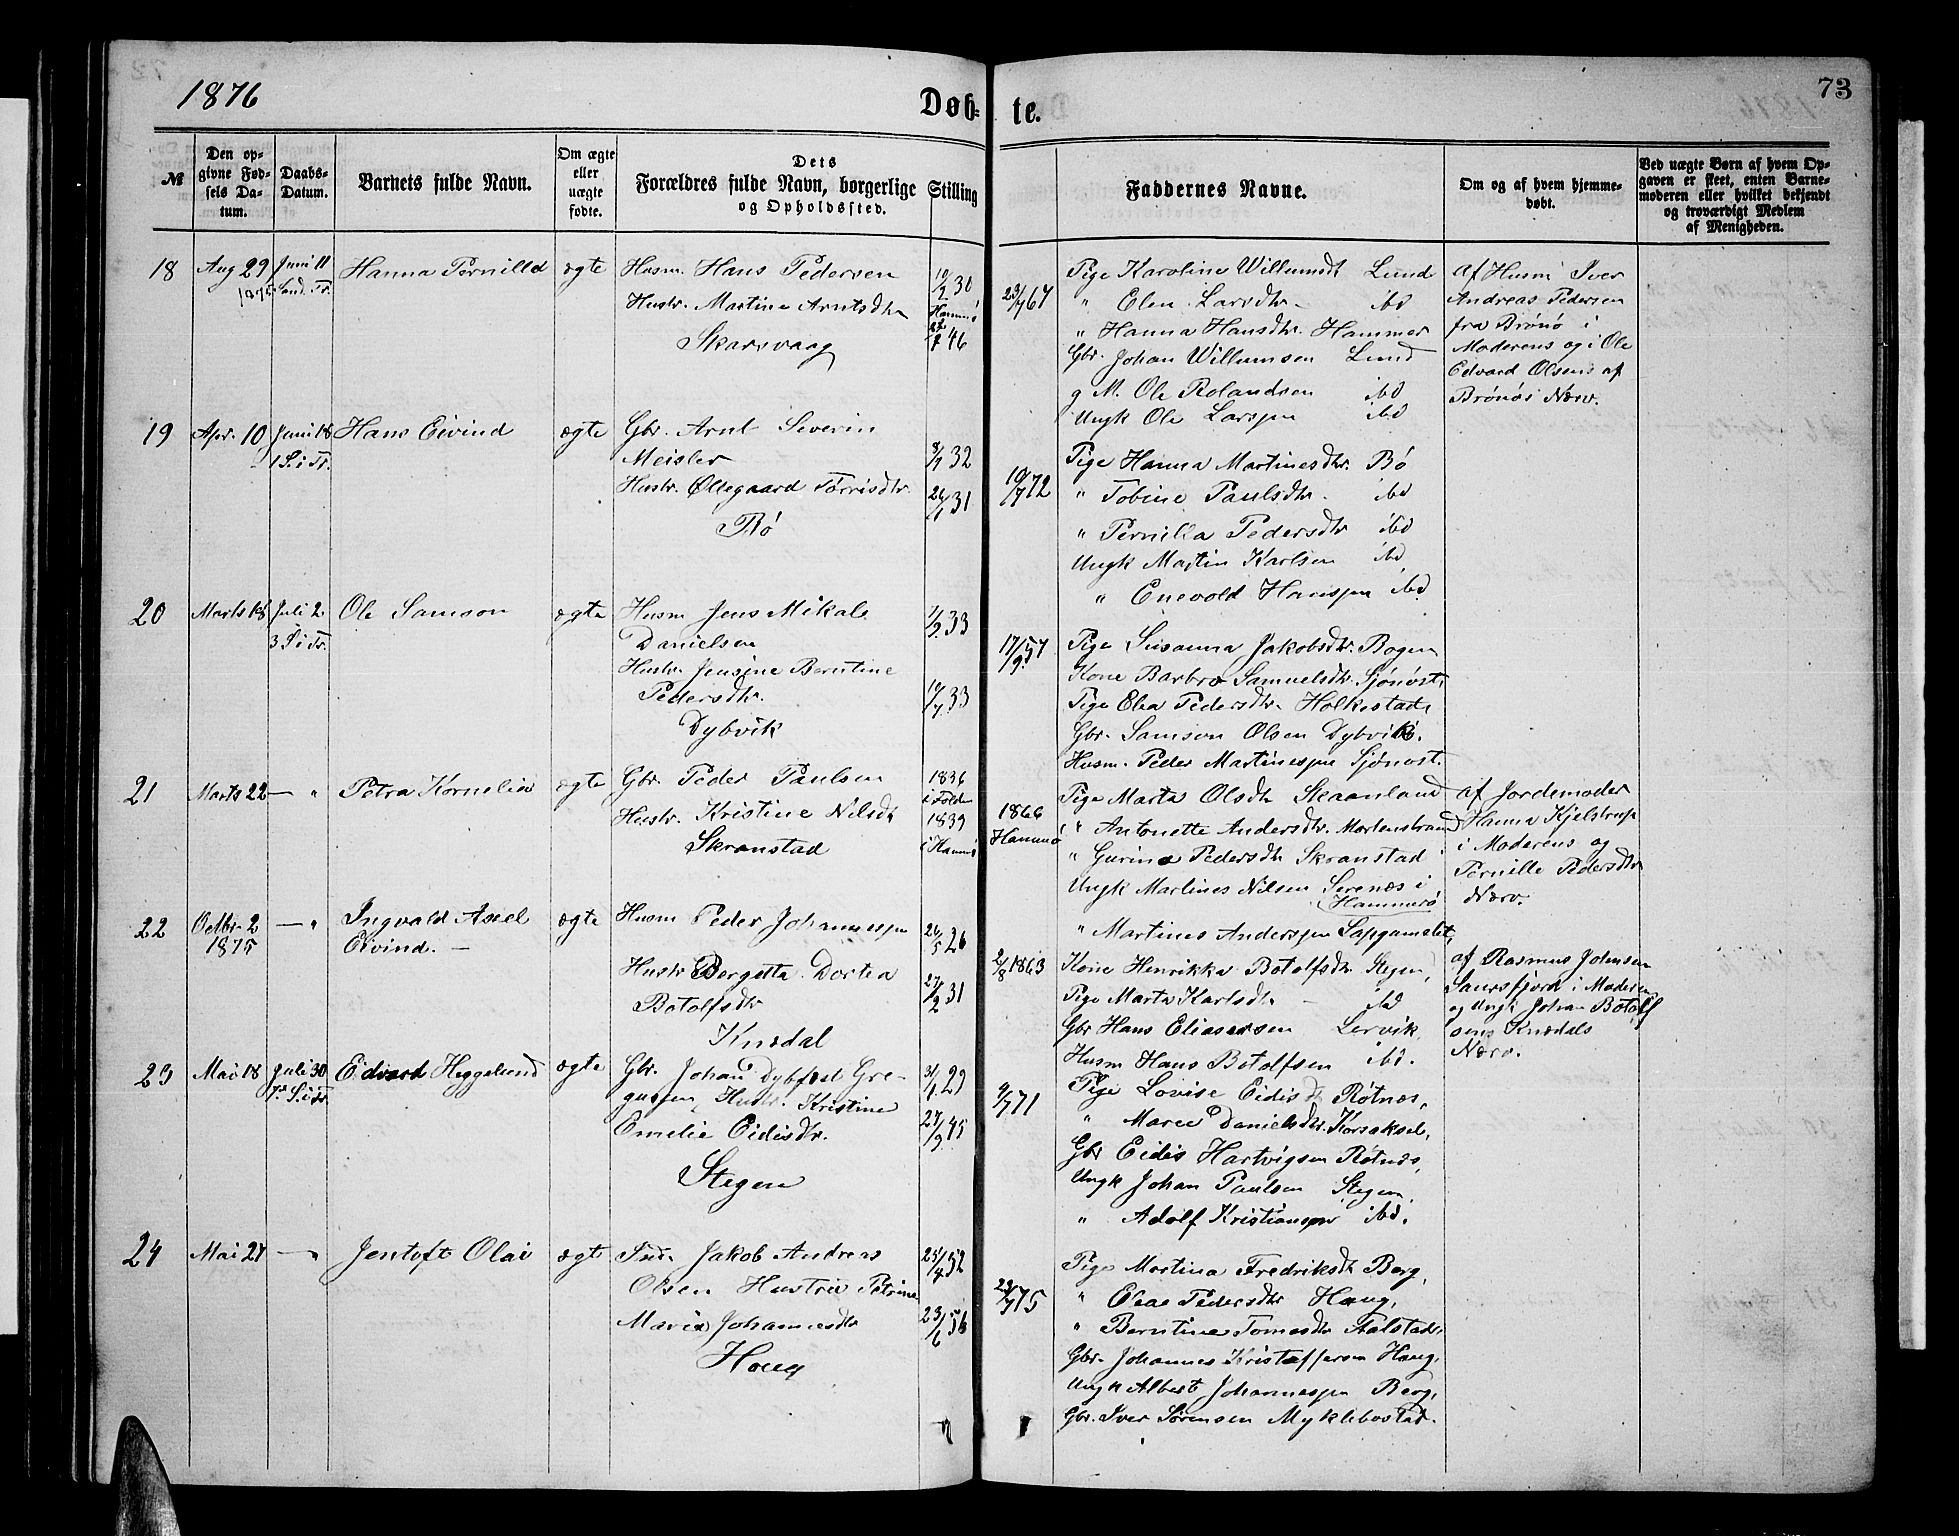 1876
Døb-
te.
73
№
Den op-
givne Fød-
sels Da-
tum.
Daabs-
Datum.
Barnets fulde Navn.
Om ægte
eller
uægte
fødte.
Dets
Forældres fulde Navn, borgerlige Stilling
og Opholdssted.
Faddernes Navne.
Om og af hvem hjemme-
døbt.
Ved uægte Børn af hvem Op-
gaven er skeet, enten Barne-
moderen eller hvilket bekjendt
og troværdigt Medlem
af Menigheden.
18
Aug 29
1875
Juni 11
Hanna Pernilla
ægte
Husm. Hans Pedersen
Hustr. Martine Arntsdtr
Skarsvaag
10/2 30
46
23/7 67
Pige Karoline Willumsdt Lund
" Elen Larsdtr. ibd
" Hanna Hansdtr. Hammer
Gbr. Johan Willumsen Lund
g M. Ole Rolandsen ibd
Ungk Ole Larssen ibd
af Husm Iver
Andreas Pedersen
fra Brønø i
Moderens og i Ole
Edvard Olsens af
Brønøs Nærv.
19
Apr. 10
Juni 18
1 S. i Tr.
Hans Eivind
ægte
Gbr. Arnt Severin
Meisler
Hustr. Øllegaard Torrisdtr.
Bø
8/7 32
26/1 31
10/7 72
Pige Hanna Martinesdtr. Bø
" Tobine Paulsdtr. ibd
" Pernilla Pedersdtr ibd
Ungk Martin Karlsen ibd
" Enevold Hanssen ibd
20
Marts 18
Juli 2
3 S i Tr.
Ole Samson
ægte
Husm Jens Mikal
Danielsen
Hustr Jensine Berntine
Pedersdtr.
Dybvik
1/9 33
10/7 33
17/9 57
Pige Susanna Jakobsdtr. Bogen
Kone Barbro Samuelsdtr. Sjønøst.
Pige Elea Pedersdtr. Holkestad,
Gbr. Samson Olsen Dybvik.
Husm. Peder Martinessen Sjønøst.
21
Marts 22
— "
Petra Kornelia
ægte
Gbr. Peder Paulsen
Hustr. Kristine Nilsdt
Skranstad
1836
i Folden
1839
i Hammø
1866
Hammø
Pige Marta Olsdtr Skaanland
" Antonette Andersdtr. Mortenstrand
" Gurina Pedersdtr Skranstad
Ungk Martines Nilsen Serenæs i
Hammerø
" Martines Anderssen
af Jordemoder
Hanna Kjelstrup
i Moderens og
Pernille Pedersdtr
Nærv.
22
Octbr 2
1875
— "
Ingvald Axel
Eivind. —
ægte
Husm Peder Johannessen
Hustr Bergitta Dortea
Botolfsdtr
Knædal
26/5 26
27/2 31
2/8 1863
Kone Henrikka Botolfsdtr. Stegen,
Pige Marta Karlsdtr — ibd
Gbr Hans Eliasersen Lervik,
Husm Hans Botolfsen ibd.
af Rasmus Johnsen
Saursfjord i Moderens
og Ungk Johan Botolf
sens Knædals
Nærv.
23
Mai 18
Juli 30
7d S. i Tr.
Edvard Heggelund
ægte
Gbr. Johan Dybfest Gre-
gussen, Hustr. Kristine
Emelie Eidisdtr.
Stegen
31/1 29
27/9 45
9/7 71
Pige Lovise Eidisdt Røtnæs,
" Maree Danielsdtr. Korsaksel,
Gbr Eidis Hartvigsen Røtnæs,
Ungk Johan Paulsen Stegen,
" Adolf Kristianssen ibd.
24
Mai 27
— "
Jentoft Olai
ægte
Ind. Jakob Andreas
Olsen Hustru Petrine
Maria Johannesdtr
Houg
25/4 52
23/6 56
23/7 75
Pige Martina Fredriksdt Berg,
" Oleae Pedersdtr Haug,
" Berntine Tomesdtr Aalstad,
Gbr. Johannes Kristoffersen Haug,
Ungk Albert Johannessen Berg,
Gbr. Iver Sørensen Myklebostad.